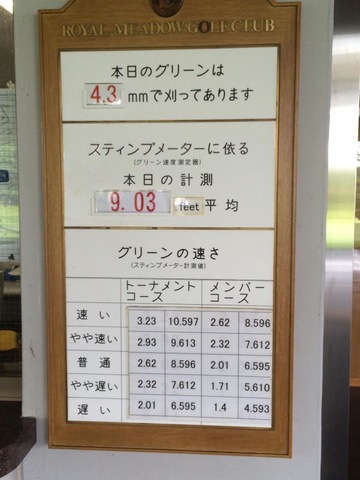 ROYAL MEADOW GOLF CLUB
本日のグリーンは
4.3 mmで刈ってあります
スティンプメーターに依る
(グリーン速度測定器)
本日の計測
9.03 feet 平均
グリーンの速さ
(スティンプメーター計測値)
トーナメントコース メンバーコース
速い 3.23 10.597 2.62 8.596
やや速い 2.93 9.613 2.32 7.612
普通 2.62 8.596 2.01 6.595
やや遅い 2.32 7.612 1.71 5.610
遅い 2.01 6.595 1.4 4.593